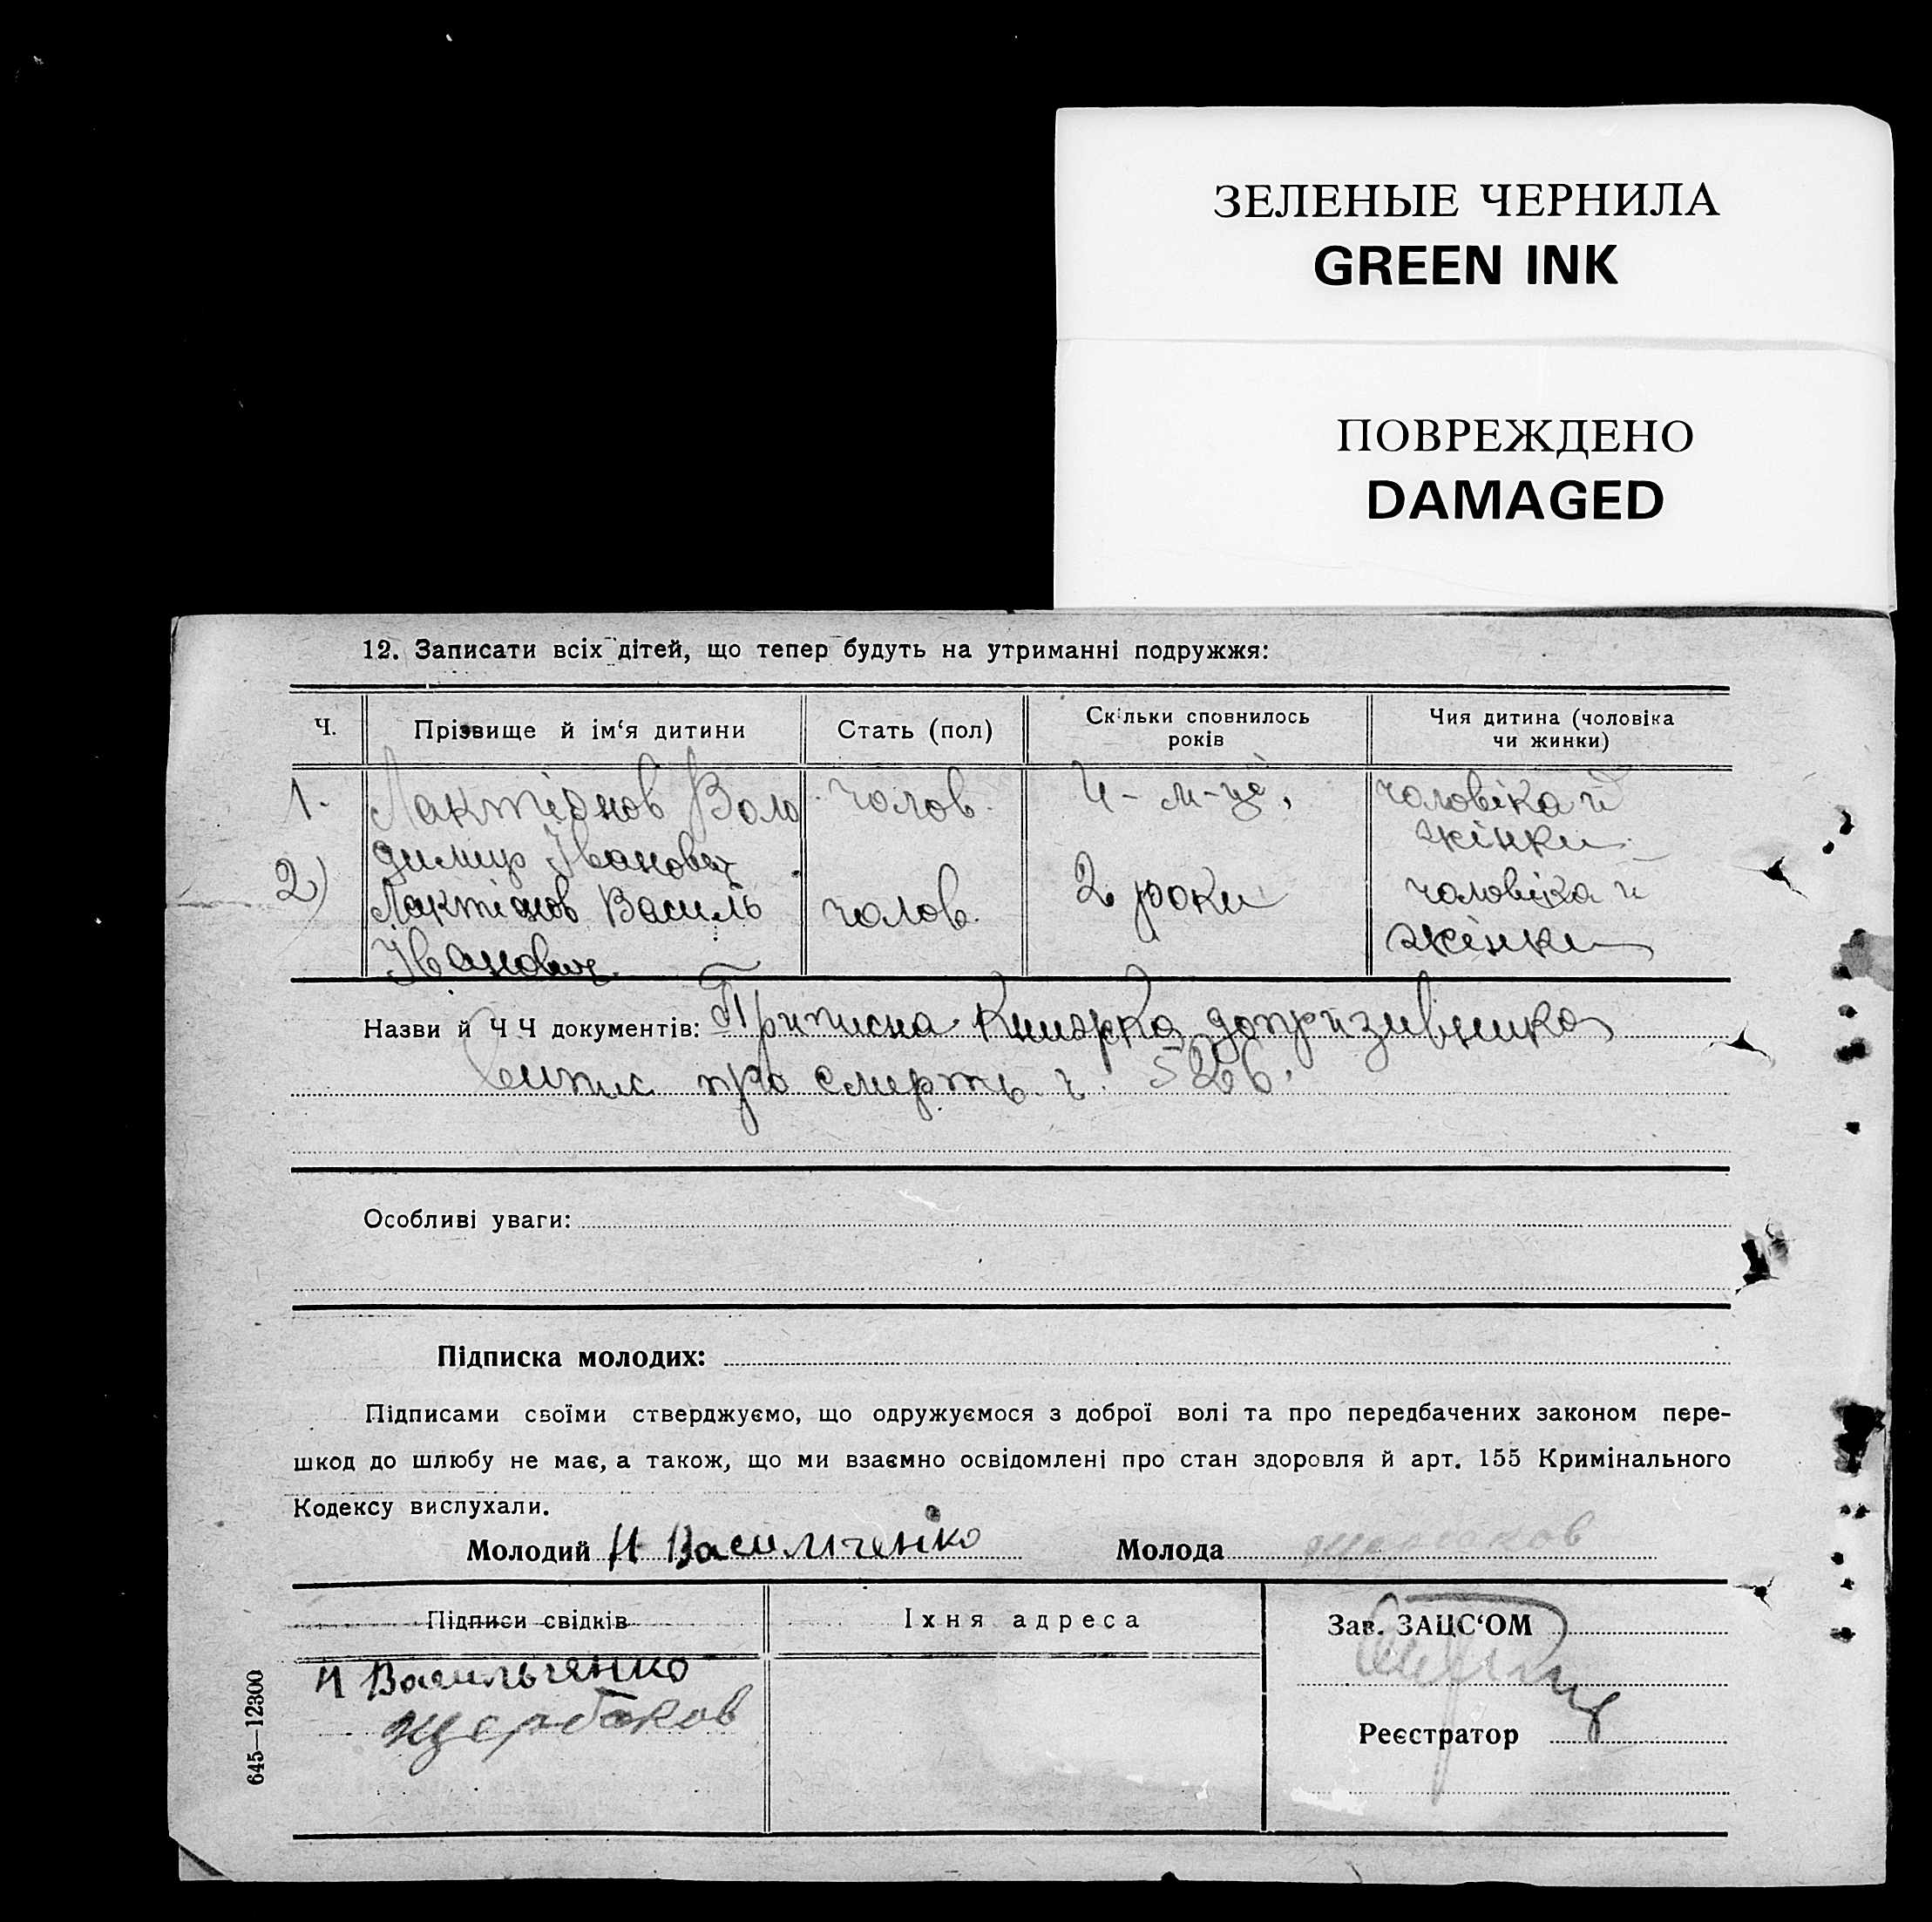 ЗЕЛЕНЫЕ ЧЕРНИЛА
GREEN INK
ПОВРЕЖДЕНО
DAMAGED
12. Записати всіх дітей, що тепер будуть на утриманні подружжя:
Ч. Прізвище й ім‘я дитини Стать (пол) Скільки сповнилось років Чия дитина (чоловіка чи жинки)
1. Лактіонов Воло чолов. 4-м-ці, чоловіка й
димир Іванович жінки
2) Лактіонов Василь чолов. 2 роки чоловіка й
Іванович жінки
Назви й Ч Ч документів: Приписна Книжка допризивника
Випис про смерть ч. 526.
Особливі уваги:
Підписка молодих:
Підписами своїми стверджуємо, що одружуємося з доброї волі та про передбачених законом пере-
шкод до шлюбу не має, а також, що ми взаємно освідомлені про стан здоровля й арт. 155 Кримінального
Кодексу вислухали.
Молодий Н Васильченко Молода Щербаков
Підписи свідків Їхня адреса Зав. ЗАЦС‘ОМ
Н Васильченко
Щербаков
Реєстратор
645—12300